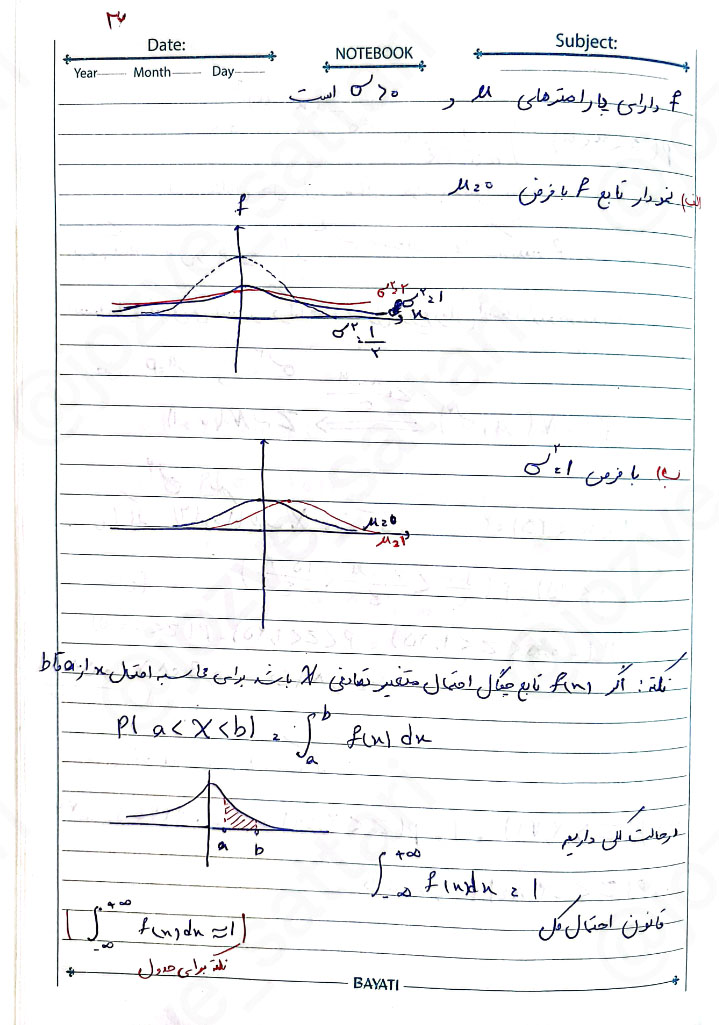 ۳۷
Date:
Year Month Day
NOTEBOOK
Subject:
f دارای پارامترهای μ و σ>0 است
الف) نمودار تابع f با فرض μ=0
f
σ²=۲
σ²=1
x
σ²=1/۲
ب) با فرض σ²=1
μ=0
μ=۲
نکته: اگر f(x) تابع چگال احتمال متغیر تصادفی X باشد برای محاسبه احتمال x از a تا b
P( a < X < b) = ∫_a^b f(x) dx
a b
در حالت کلی داریم
∫_{-∞}^{+∞} f(x)dx = 1
قانون احتمال کل
∫_{-∞}^{+∞} f(x)dx ≈ 1
نکته برای جدول
BAYATI